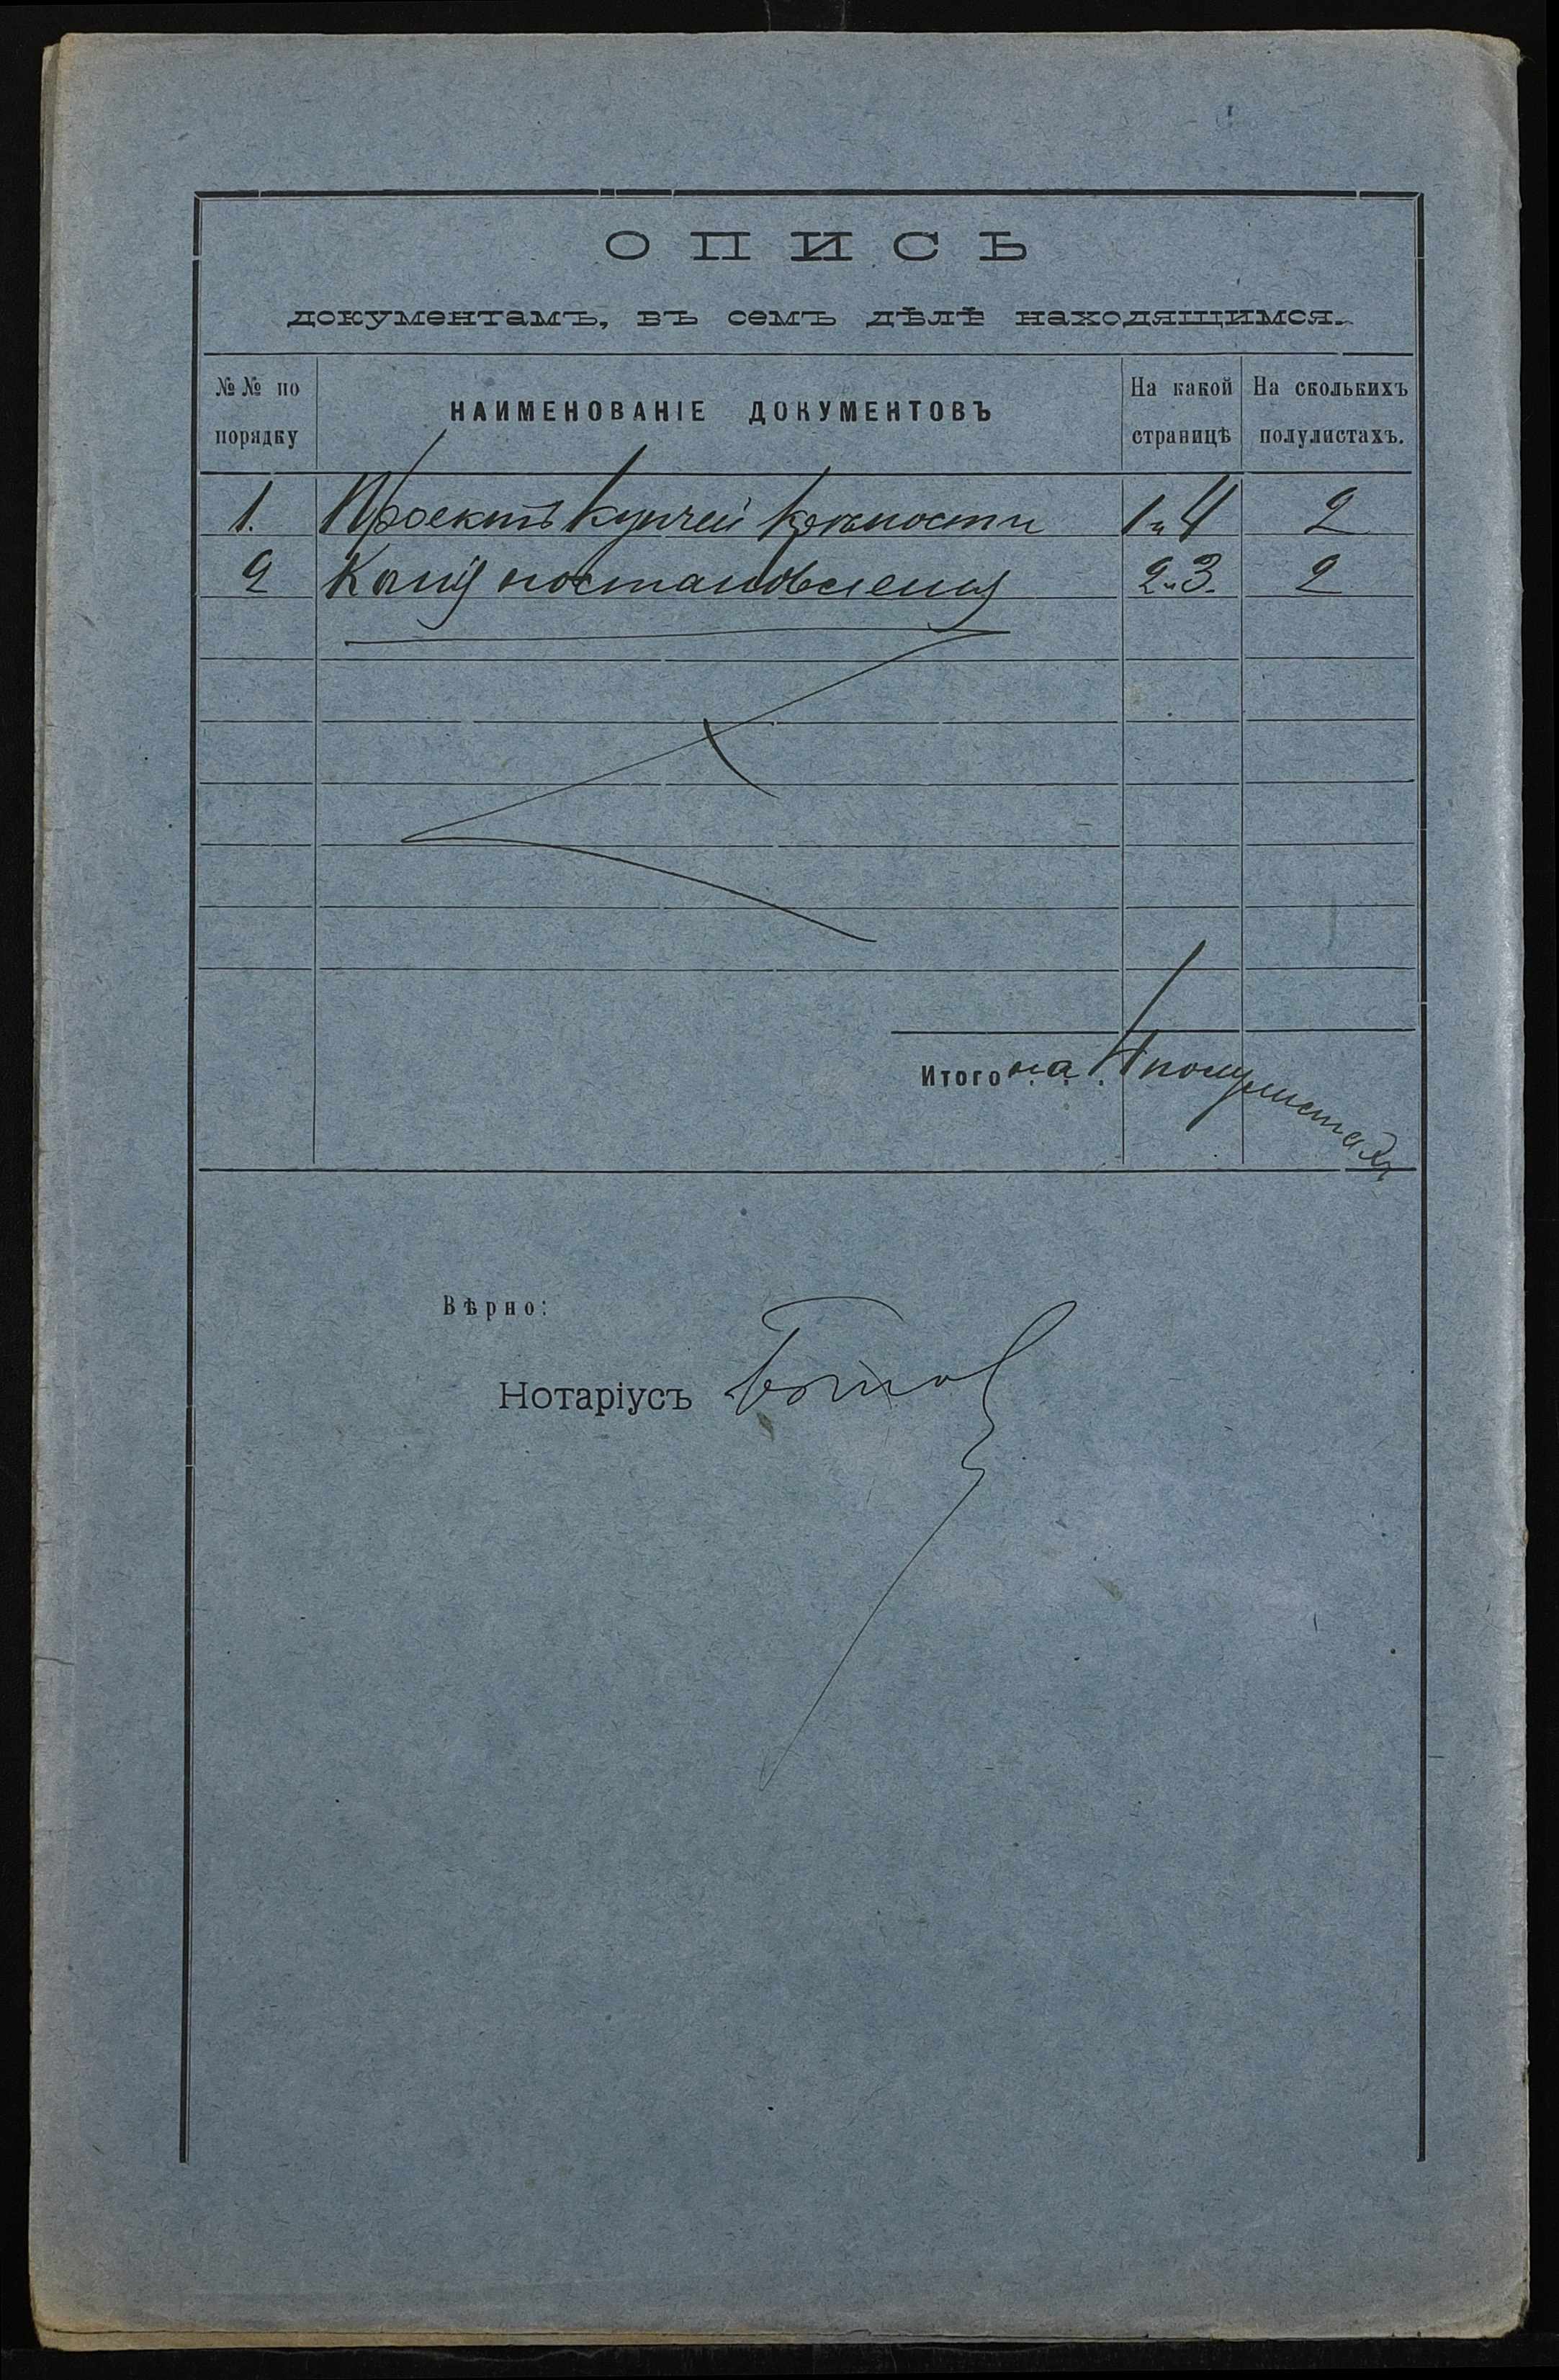 ОПИСЬ
документамъ, въ семъ дѣлѣ находящимся.
№№ по порядку НАИМЕНОВАНІЕ ДОКУМЕНТОВЪ На какой страницѣ На сколькихъ полулистахъ.
1. Проектъ купчей крѣпости 1 и 4 2
2 Копія постановленія 2 и 3. 2
Итого на 4 полулистахъ
Вѣрно:
Нотаріусъ